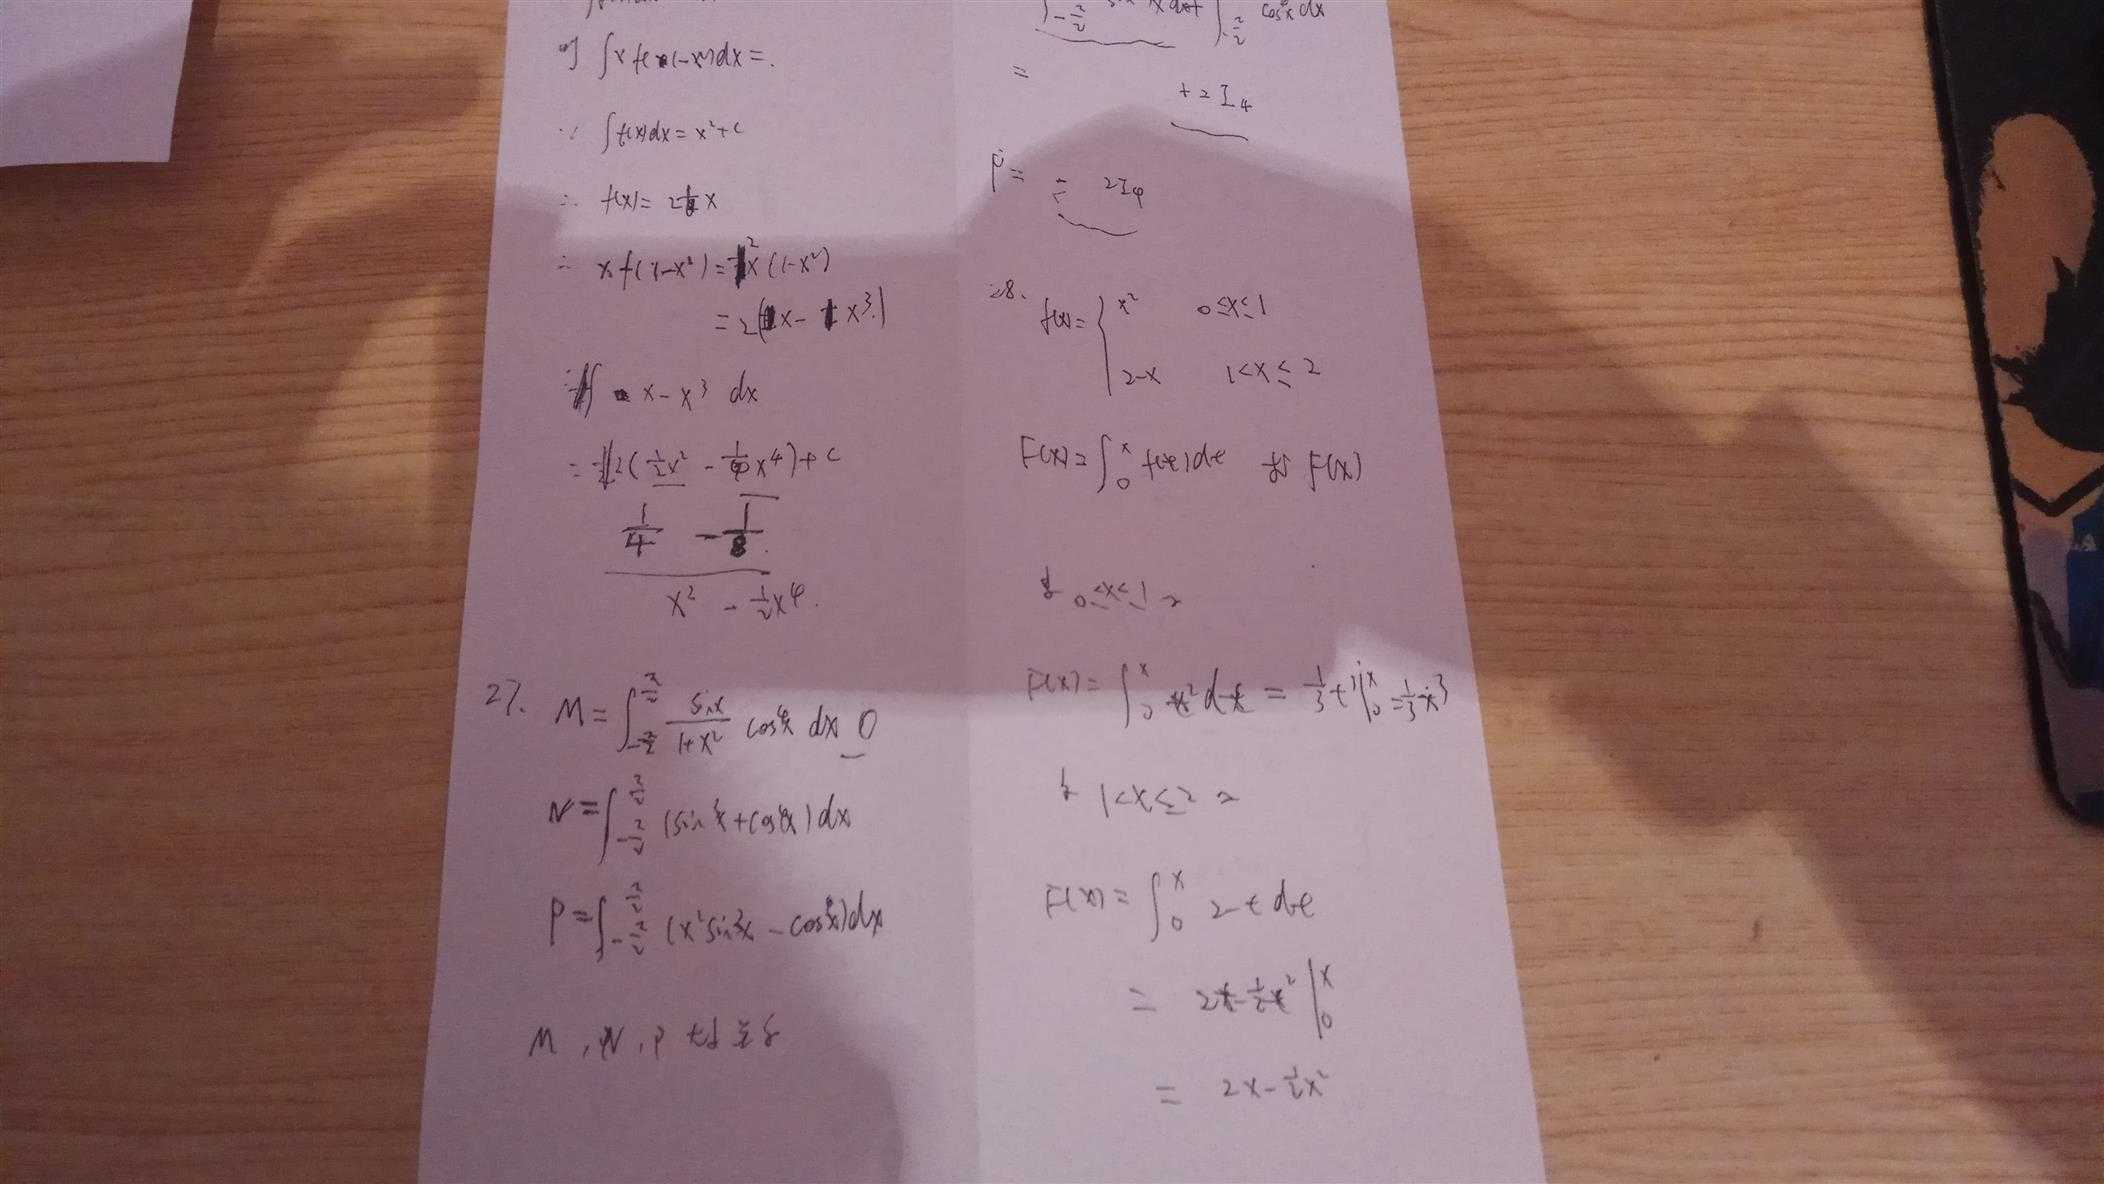 ∫x f(1-x²)dx=.
∵ ∫f(x)dx=x²+c
∴ f(x)=2x
∴ x f(1-x²)=2x(1-x²)
=2(x-x³)
∫ x-x³ dx
=2(1/2x²-1/4x⁴)+c
1/4 -1/8
x²-1/2x⁴.
27. M=∫_{-π/2}^{π/2} sinx/(1+x²) cos⁴x dx 0
N=∫_{-π/2}^{π/2} (sin³x+cos⁴x)dx
P=∫_{-π/2}^{π/2} (x²sin³x-cos⁴x)dx
M,N,P
cos⁴x dx
=
+2I₄
P= = 2I₄
28. f(x)={ x² 0≤x≤1
2-x 1<x≤2
F(x)=∫₀ˣ f(t)dt 求 F(x)
0≤x≤1
F(x)=∫₀ˣ t²dt=1/3t³|₀ˣ=1/3x³
1<x≤2
F(x)=∫₀ˣ 2-t dt
= 2t-1/2t²|₀ˣ
= 2x-1/2x²